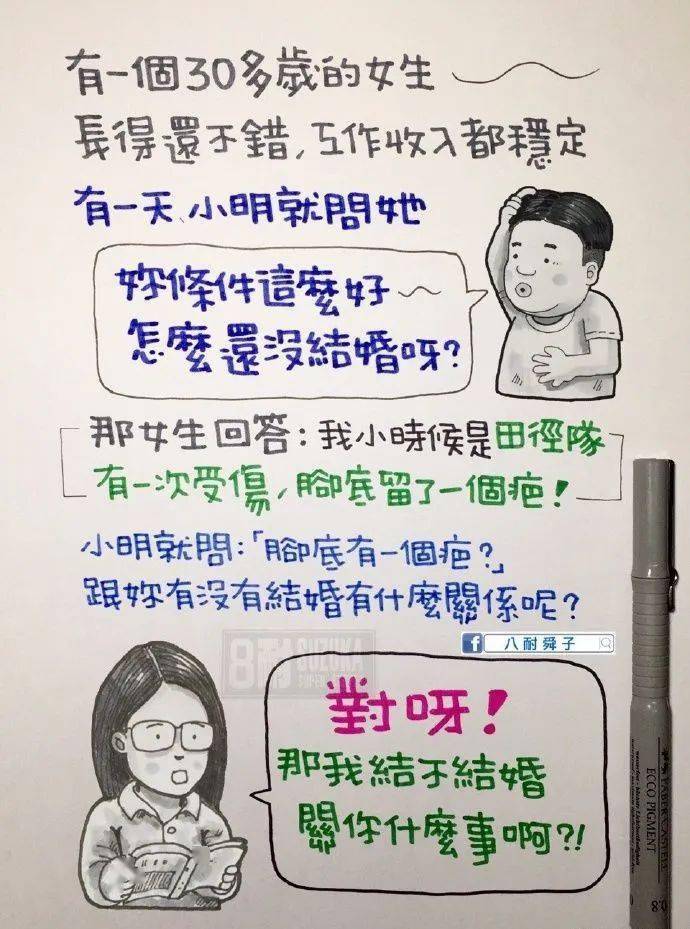 有一個30多歲的女生
長得還不錯,工作收入都穩定
有一天、小明就問她
妳條件這麼好
怎麼還沒結婚呀?
那女生回答:我小時候是田徑隊
有一次受傷,腳底留了一個疤!
小明就問:「腳底有一個疤?」
跟妳有沒有結婚有什麼關係呢?
f 八耐舜子
8耐 SUZUKA
SUPER
對呀!
那我結不結婚
關你什麼事啊?!
FABER-CASTELL
ECCO PIGMENT
0.8